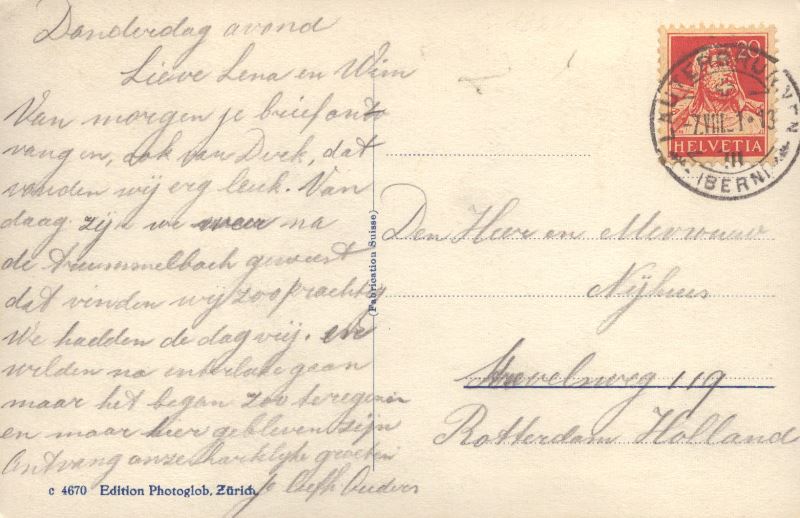 Donderdag avond
Lieve Lena en Wim
Van morgen je brief ont
vangen, ook van Dirk, dat
vonden wij erg leuk. Van
daag zijn we weer na
de trummelbach geweest
dat vinden wij zoo prachtig
We hadden de dag vrij. en
wilden na interlake gaan
maar het began zoo te regenen
en maar hier gebleven zijn
Ontvang onze hartelijke groeten
je liefh Ouders
c 4670 Edition Photoglob, Zürich.
(Fabrication Suisse)
20
HELVETIA
LAUTERBRUNNEN
(BERN)
Den Heer en Mevrouw
Nijhuis
119
Rotterdam Holland